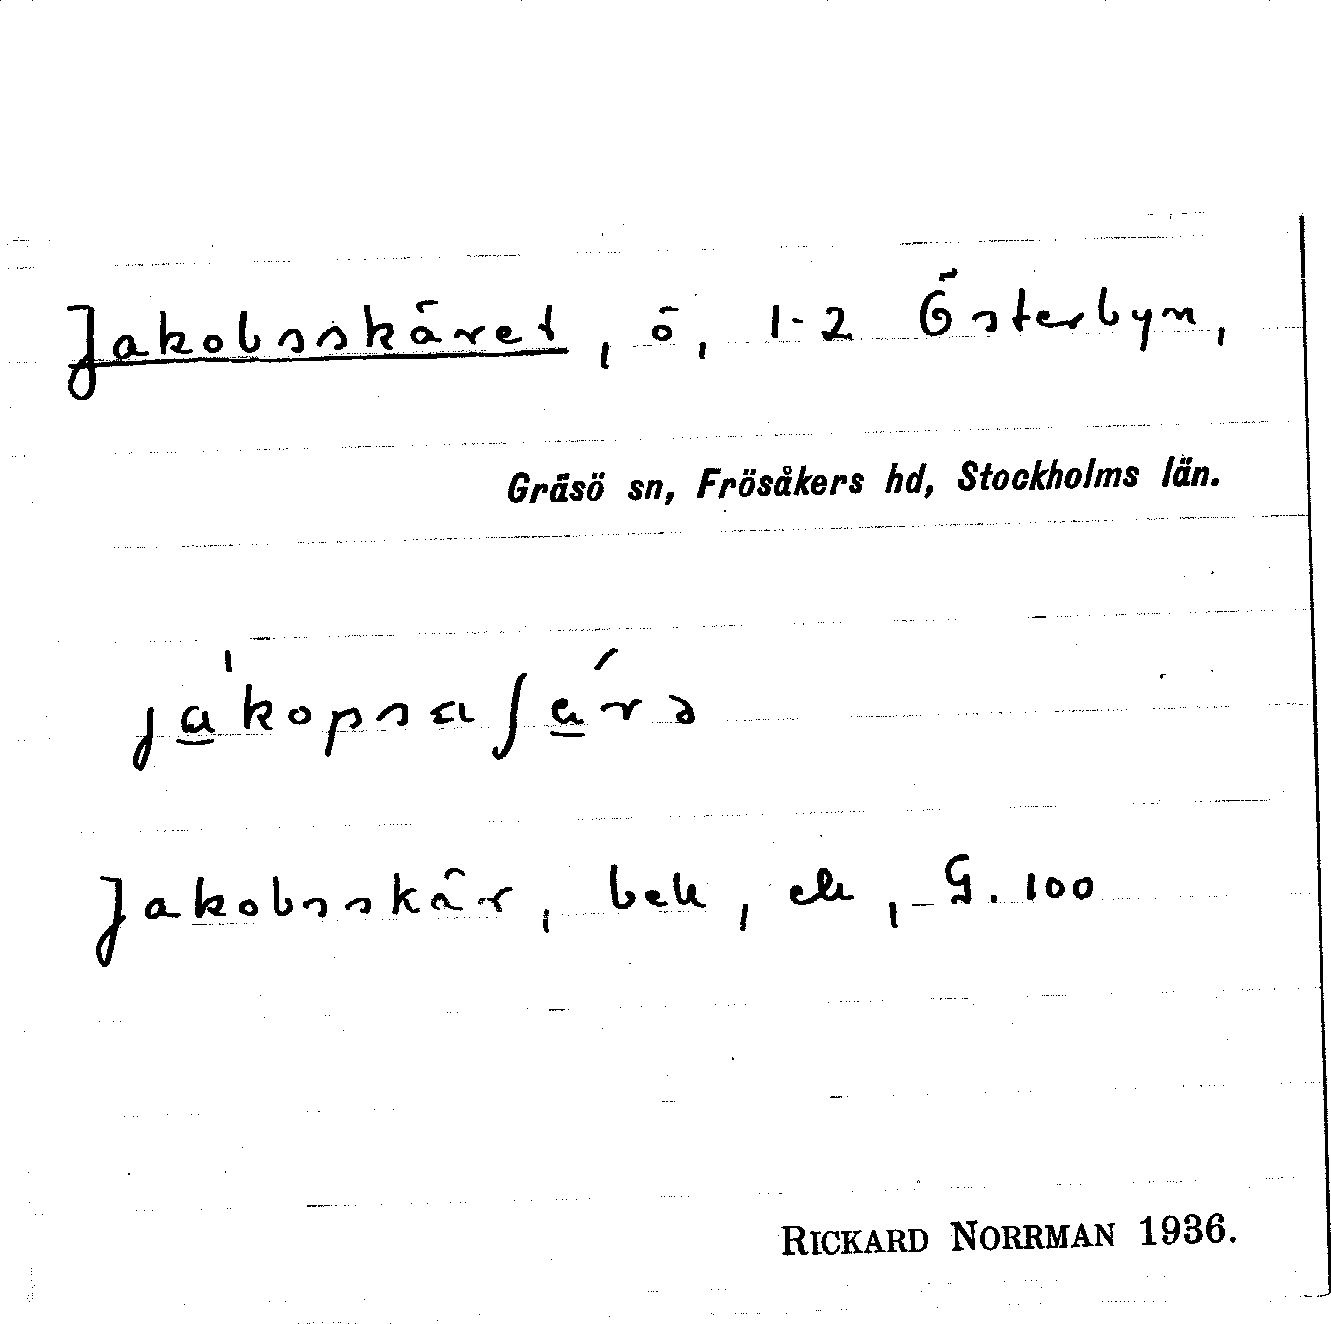 Jakobsskäret, ö, 1-2 Österbyn,
Gräsö sn, Frösåkers hd, Stockholms län.
Jakobsskär, bek, ek, G. 100
RICKARD NORRMAN 1936.